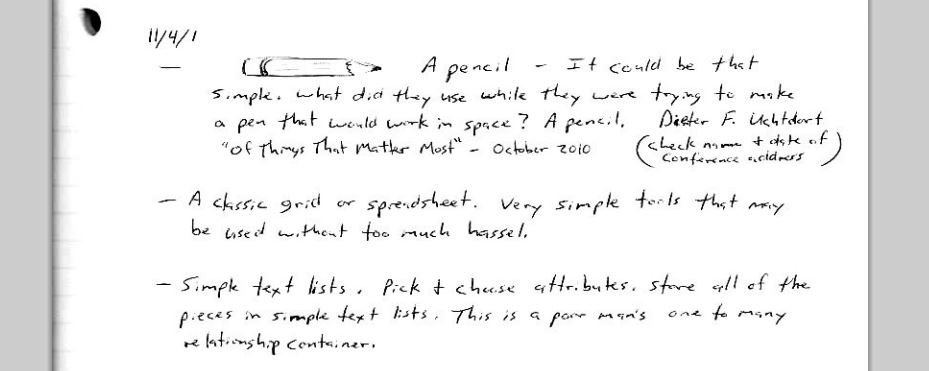 11/4/1
— A pencil - It could be that
simple. What did they use while they were trying to make
a pen that would work in space? A pencil. Dieter F. Uchtdorf
"Of Things That Matter Most" - October 2010 (check name + date of
conference address)
— A classic grid or spreadsheet. Very simple tools that may
be used without too much hassel.
— Simple text lists. Pick & chuse attributes. Store all of the
pieces in simple text lists. This is a poor man's one to many
relationship container.